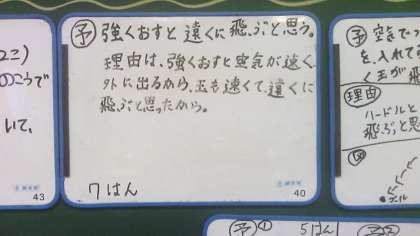 予 強くおすと遠くに飛ぶと思う。
理由は、強くおすと空気が速く、
外に出るから、玉も速くて、遠くに
飛ぶと思ったから。
7はん
40
のこうで
いて、
43
予 空気で
を、入れて
く玉が飛
理由
ハードルと
飛ぶと思
図
予① 5はん